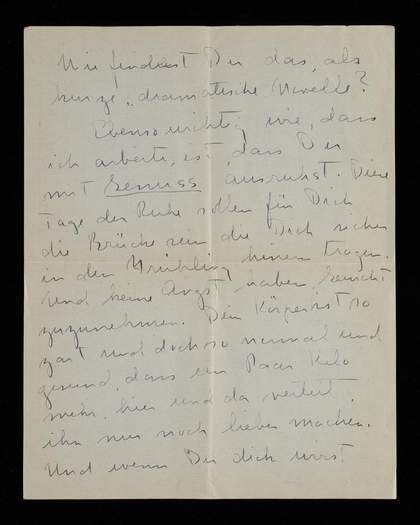 Wie findest Du das, als
kurze, dramatische Novelle?
Ebenso wichtig wie, dass
ich arbeite, ist, dass Du
mit Genuss ausruhst. Diese
Tage der Ruhe sollen für Dich
die Brücke sein die Dich sicher
in den Frühling hinein tragen.
Und keine Angst haben, Gewicht
zuzunehmen. Dein Körper ist so
zart und doch so normal und
gesund, dass ein Paar Kilo
mehr, hier und da verteilt,
ihn nur noch lieber machen.
Und wenn Du dich wirst